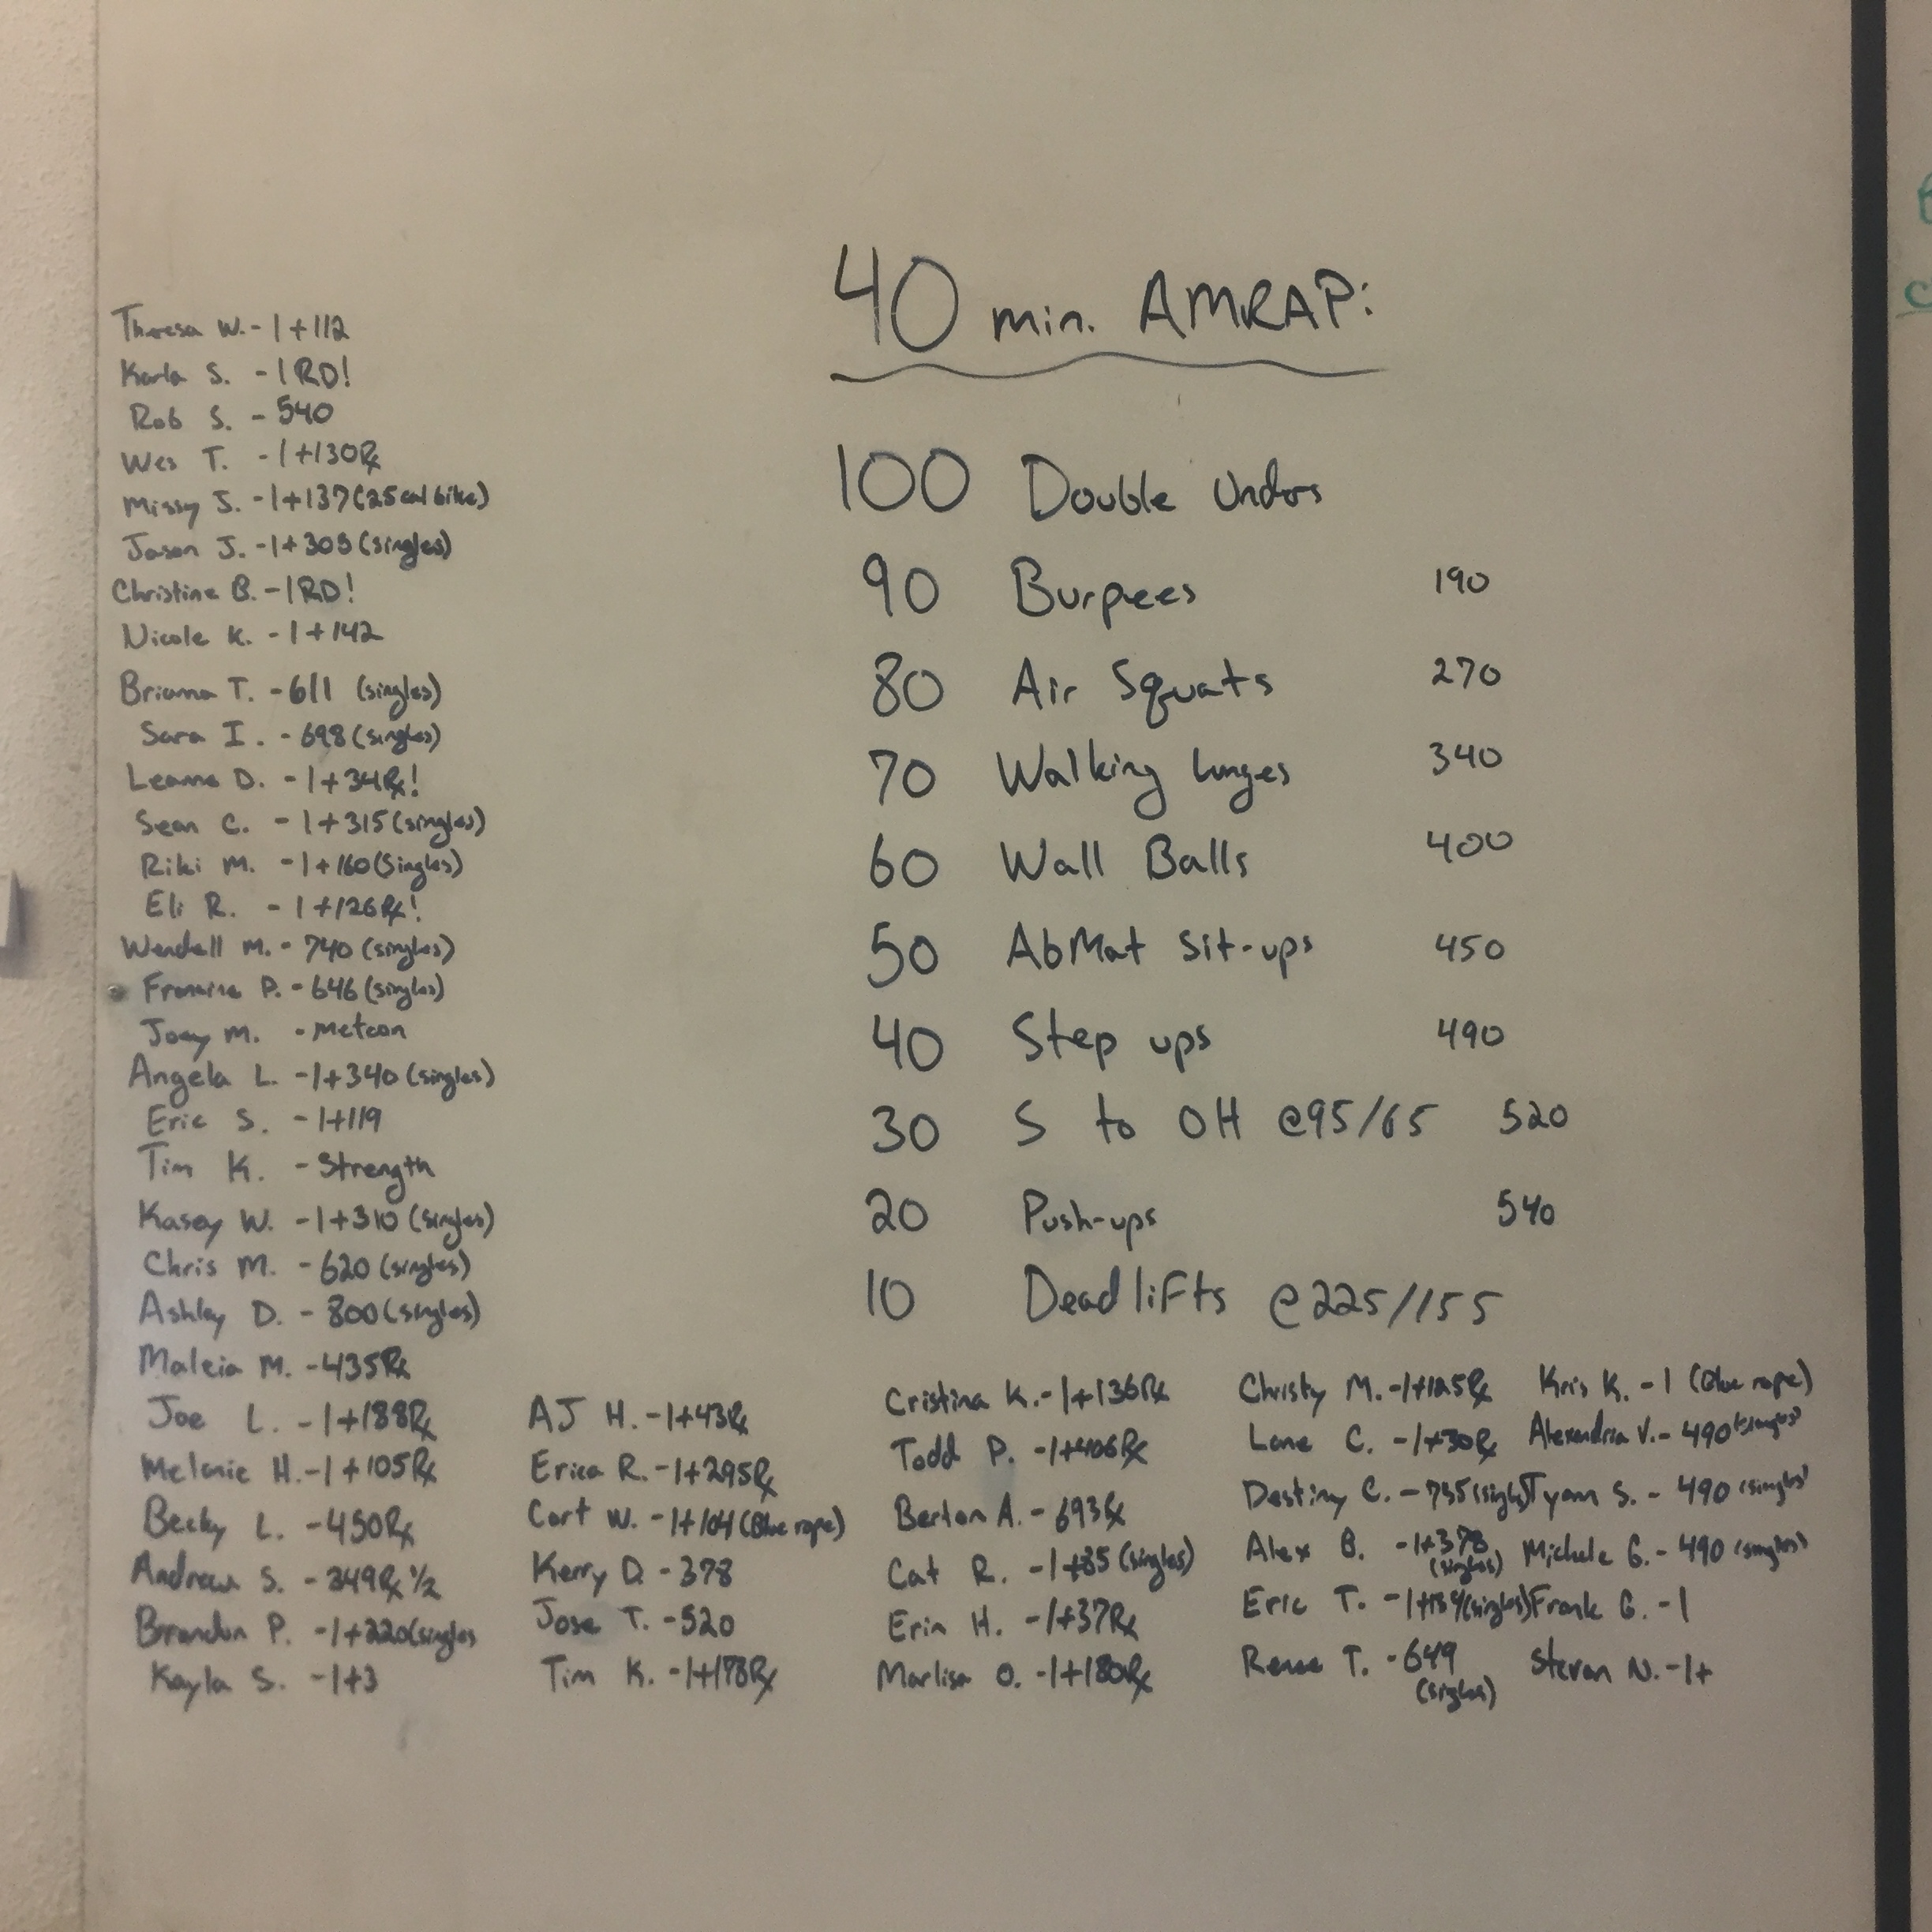 40 min. AMRAP:
100 Double Unders
90 Burpees 190
80 Air Squats 270
70 Walking Lunges 340
60 Wall Balls 400
50 AbMat Sit-ups 450
40 Step ups 490
30 S to OH @95/65 520
20 Push-ups 540
10 Deadlifts @225/155
Theresa W. - 1+112
Karla S. - 1 RD!
Rob S. - 540
Wes T. - 1+130Rx
Missy J. - 1+137 (25 cal bike)
Jason J. - 1+305 (singles)
Christine B. - 1 RD!
Nicole K. - 1+142
Brianna T. - 611 (singles)
Sara I. - 698 (singles)
Leanne D. - 1+34Rx!
Sean C. - 1+315 (singles)
Riki M. - 1+160 (Singles)
Eli R. - 1+126Rx!
Wendell M. - 740 (singles)
Francine P. - 646 (singles)
Joey M. - Metcon
Angela L. - 1+340 (singles)
Eric S. - 1+119
Tim K. - Strength
Kasey W. - 1+310 (singles)
Chris M. - 620 (singles)
Ashley D. - 800 (singles)
Maleia M. - 435Rx
Joe L. - 1+188Rx
Melanie H. - 1+105Rx
Becky L. - 450Rx
Andrew S. - 349Rx 1/2
Brandon P. - 1+220 (singles
Kayla S. - 1+3
AJ H. - 1+43Rx
Erica R. - 1+295Rx
Cort W. - 1+104 (Blue rope)
Kerry D. - 378
Jose T. - 520
Tim K. - 1+178Rx
Cristina K. - 1+136Rx
Todd P. - 1+406Rx
Berton A. - 693Rx
Cat R. - 1+85 (singles)
Erin H. - 1+37Rx
Marlisa O. - 1+180Rx
Christy M. - 1+125Rx
Lane C. - 1+30Rx
Destiny C. - 735 (singles)
Alex B. - 1+378
(singles)
Eric T. - 1+134 (singles)
Renee T. - 649
(singles)
Kris K. - 1 (Blue rope)
Alexandria V. - 490 (singles)
Tyann S. - 490 (singles)
Michele G. - 490 (singles)
Frank G. - 1
Steven N. - 1+